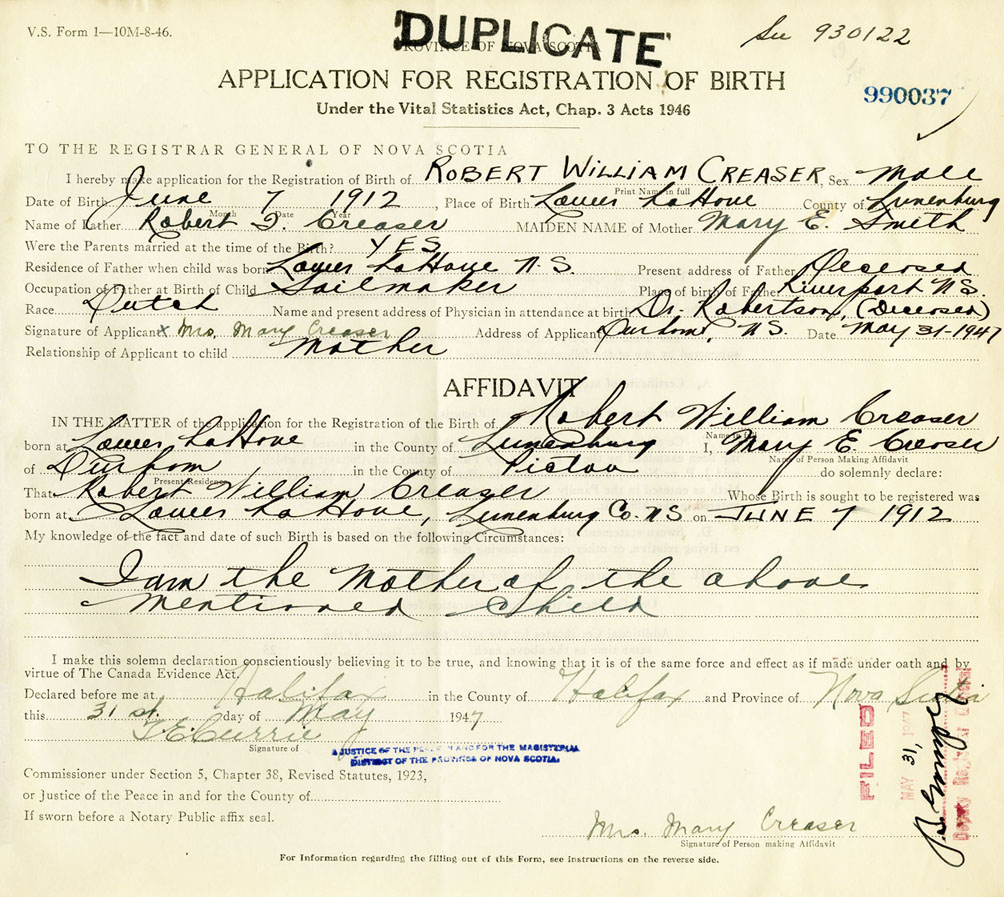 V.S. Form 1—10M-8-46.
DUPLICATE
See 930122
PROVINCE OF NOVA SCOTIA
APPLICATION FOR REGISTRATION OF BIRTH
990037
Under the Vital Statistics Act, Chap. 3 Acts 1946
TO THE REGISTRAR GENERAL OF NOVA SCOTIA
I hereby make application for the Registration of Birth of ROBERT WILLIAM CREASER, Sex Male
Print Name in full
Date of Birth June 7 1912, Place of Birth Lower LaHave County of Lunenburg
Month Date Year
Name of Father Robert Creaser MAIDEN NAME of Mother Mary E. Smith
Were the Parents married at the time of the Birth? YES
Residence of Father when child was born Lower LaHave N.S. Present address of Father Deceased
Occupation of Father at Birth of Child Sailmaker Place of birth of Father Riverport N.S.
Race Dutch Name and present address of Physician in attendance at birth Dr. Robertson, (Deceased)
Signature of Applicant x Mrs. Mary Creaser Address of Applicant Durham, N.S. Date May 31-1947
Relationship of Applicant to child Mother
AFFIDAVIT
IN THE MATTER of the application for the Registration of the Birth of Robert William Creaser
born at Lower LaHave in the County of Lunenburg I, Mary E. Creaser
Name of Person Making Affidavit
of Durham, in the County of Pictou do solemnly declare:
Present Residence
That Robert William Creaser Whose Birth is sought to be registered was
born at Lower LaHave, Lunenburg Co. N.S on JUNE 7 1912
My knowledge of the fact and date of such Birth is based on the following Circumstances:
I am the Mother of the above
mentioned Child
I make this solemn declaration conscientiously believing it to be true, and knowing that it is of the same force and effect as if made under oath and by
virtue of The Canada Evidence Act.
Declared before me at Halifax in the County of Halifax and Province of Nova Scotia
this 31st day of May 1947
Currie
Signature of
A JUSTICE OF THE PEACE IN AND FOR THE MAGISTERIAL
DISTRICT OF THE PROVINCE OF NOVA SCOTIA.
FILED
MAY 31, 1947
Deputy Registrar General
Commissioner under Section 5, Chapter 38, Revised Statutes, 1923,
or Justice of the Peace in and for the County of
If sworn before a Notary Public affix seal.
Mrs. Mary Creaser
Signature of Person making Affidavit
For Information regarding the filling out of this Form, see instructions on the reverse side.